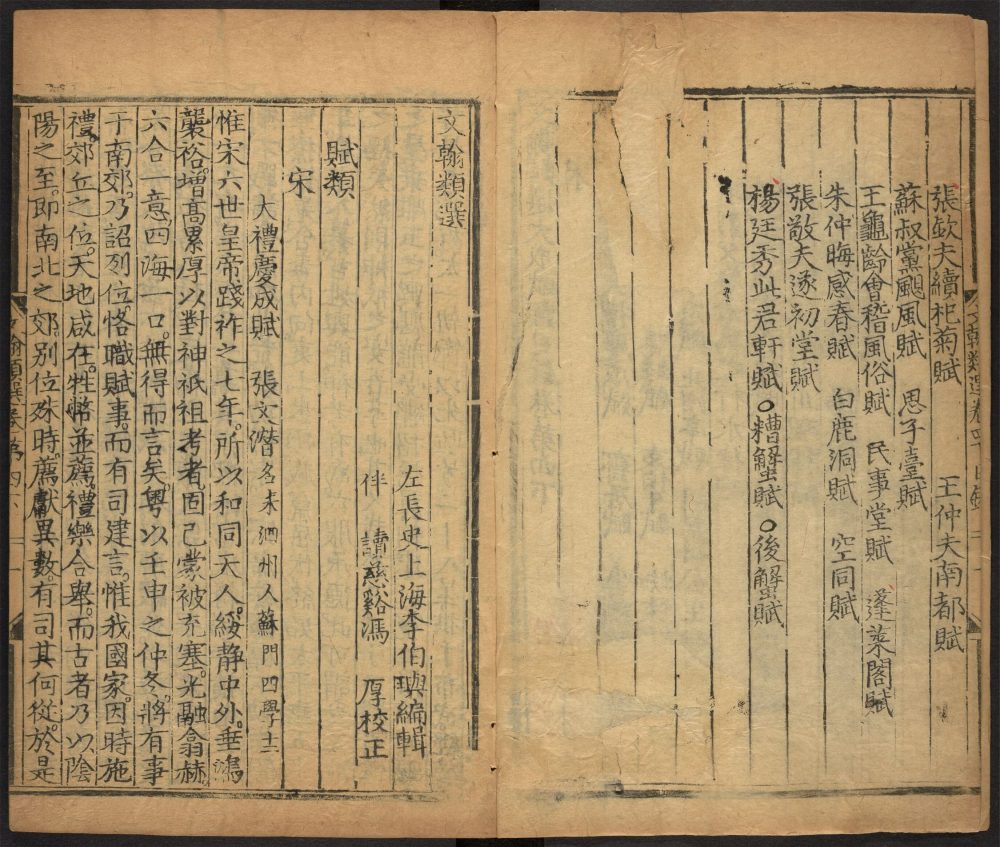 張欽夫續杞菊賦 王仲夫南都賦
蘇叔黨颶風賦 思子臺賦
王龜齡會稽風俗賦 民事堂賦 蓬萊閣賦
朱仲晦感春賦 白鹿洞賦 空同賦
張敬夫遂初堂賦
楊廷秀此君軒賦 ○糟蟹賦 ○後蟹賦
文翰類選
左長史上海李伯璵編輯
伴讀慈谿馮厚校正
賦類
宋
大禮慶成賦 張文潛 名耒泗州人蘇門四學士
惟宋六世皇帝踐祚之七年。所以和同天人。綏靜中外。垂鴻
襲裕。增高累厚。以對神祇祖考者。固已蒙被充塞。光融翕赫。
六合一意。四海一口。無得而言矣。粵以壬申之仲冬。將有事
于南郊。乃詔列位。恪職賦事。而有司建言。惟我國家。因時施
禮。郊丘之位。天地咸在。牲幣並薦。禮樂合舉。而古者乃以陰
陽之至。即南北之郊。別位殊時。薦獻異數。有司其何從。於是